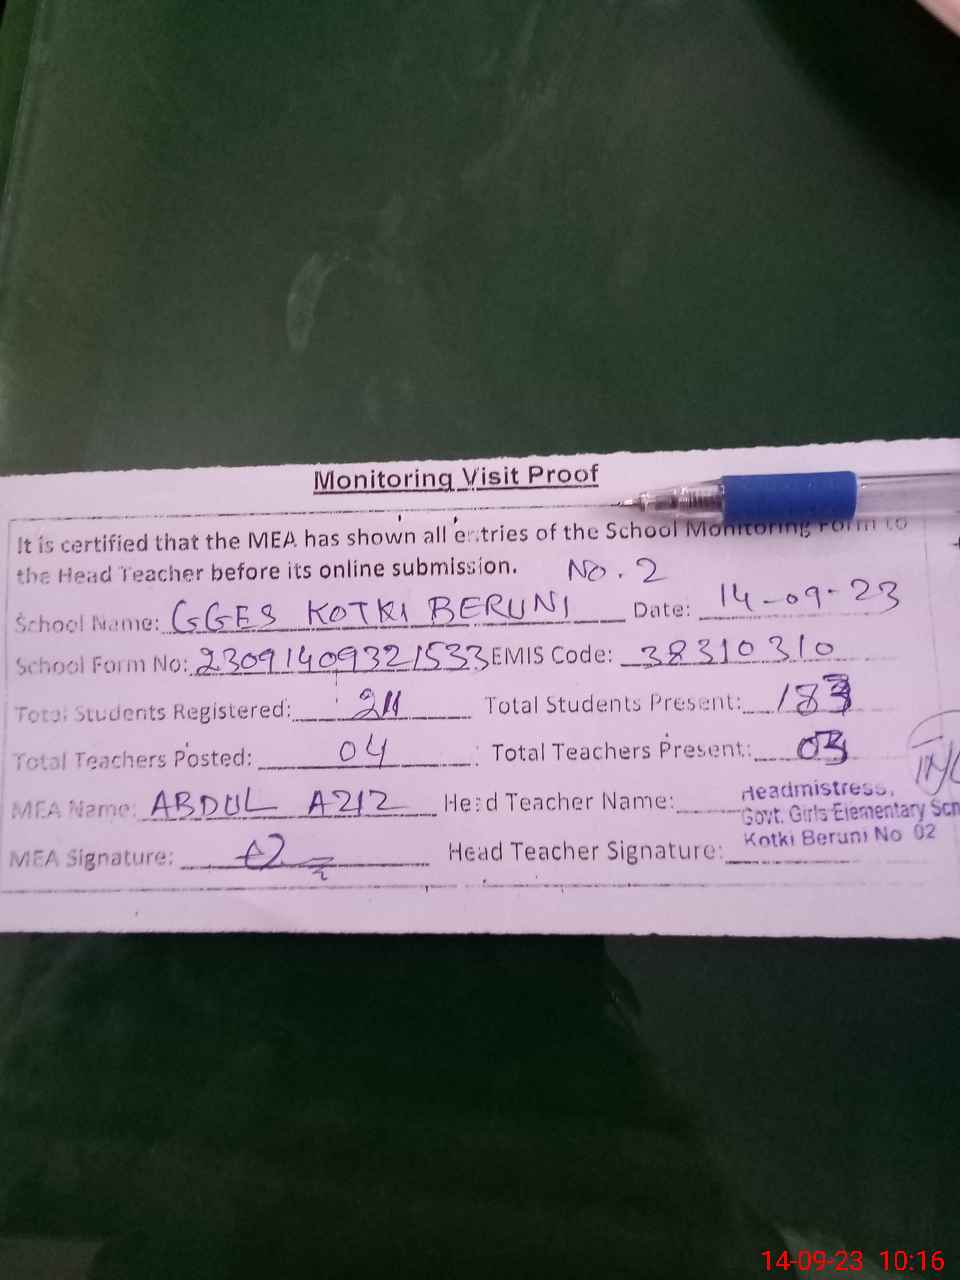 Monitoring Visit Proof
It is certified that the MEA has shown all entries of the School Monitoring Form to
the Head Teacher before its online submission. No. 2
School Name: GGES KOTKI BERUNI Date: 14-09-23
School Form No: 23091409321533 EMIS Code: 38310310
Total Students Registered: 211 Total Students Present: 183
Total Teachers Posted: 04 Total Teachers Present: 03
MEA Name: ABDUL AZIZ Head Teacher Name:
Headmistress,
Govt. Girls Elementary Sch
Kotki Beruni No 02
MEA Signature: Head Teacher Signature:
14-09-23 10:16